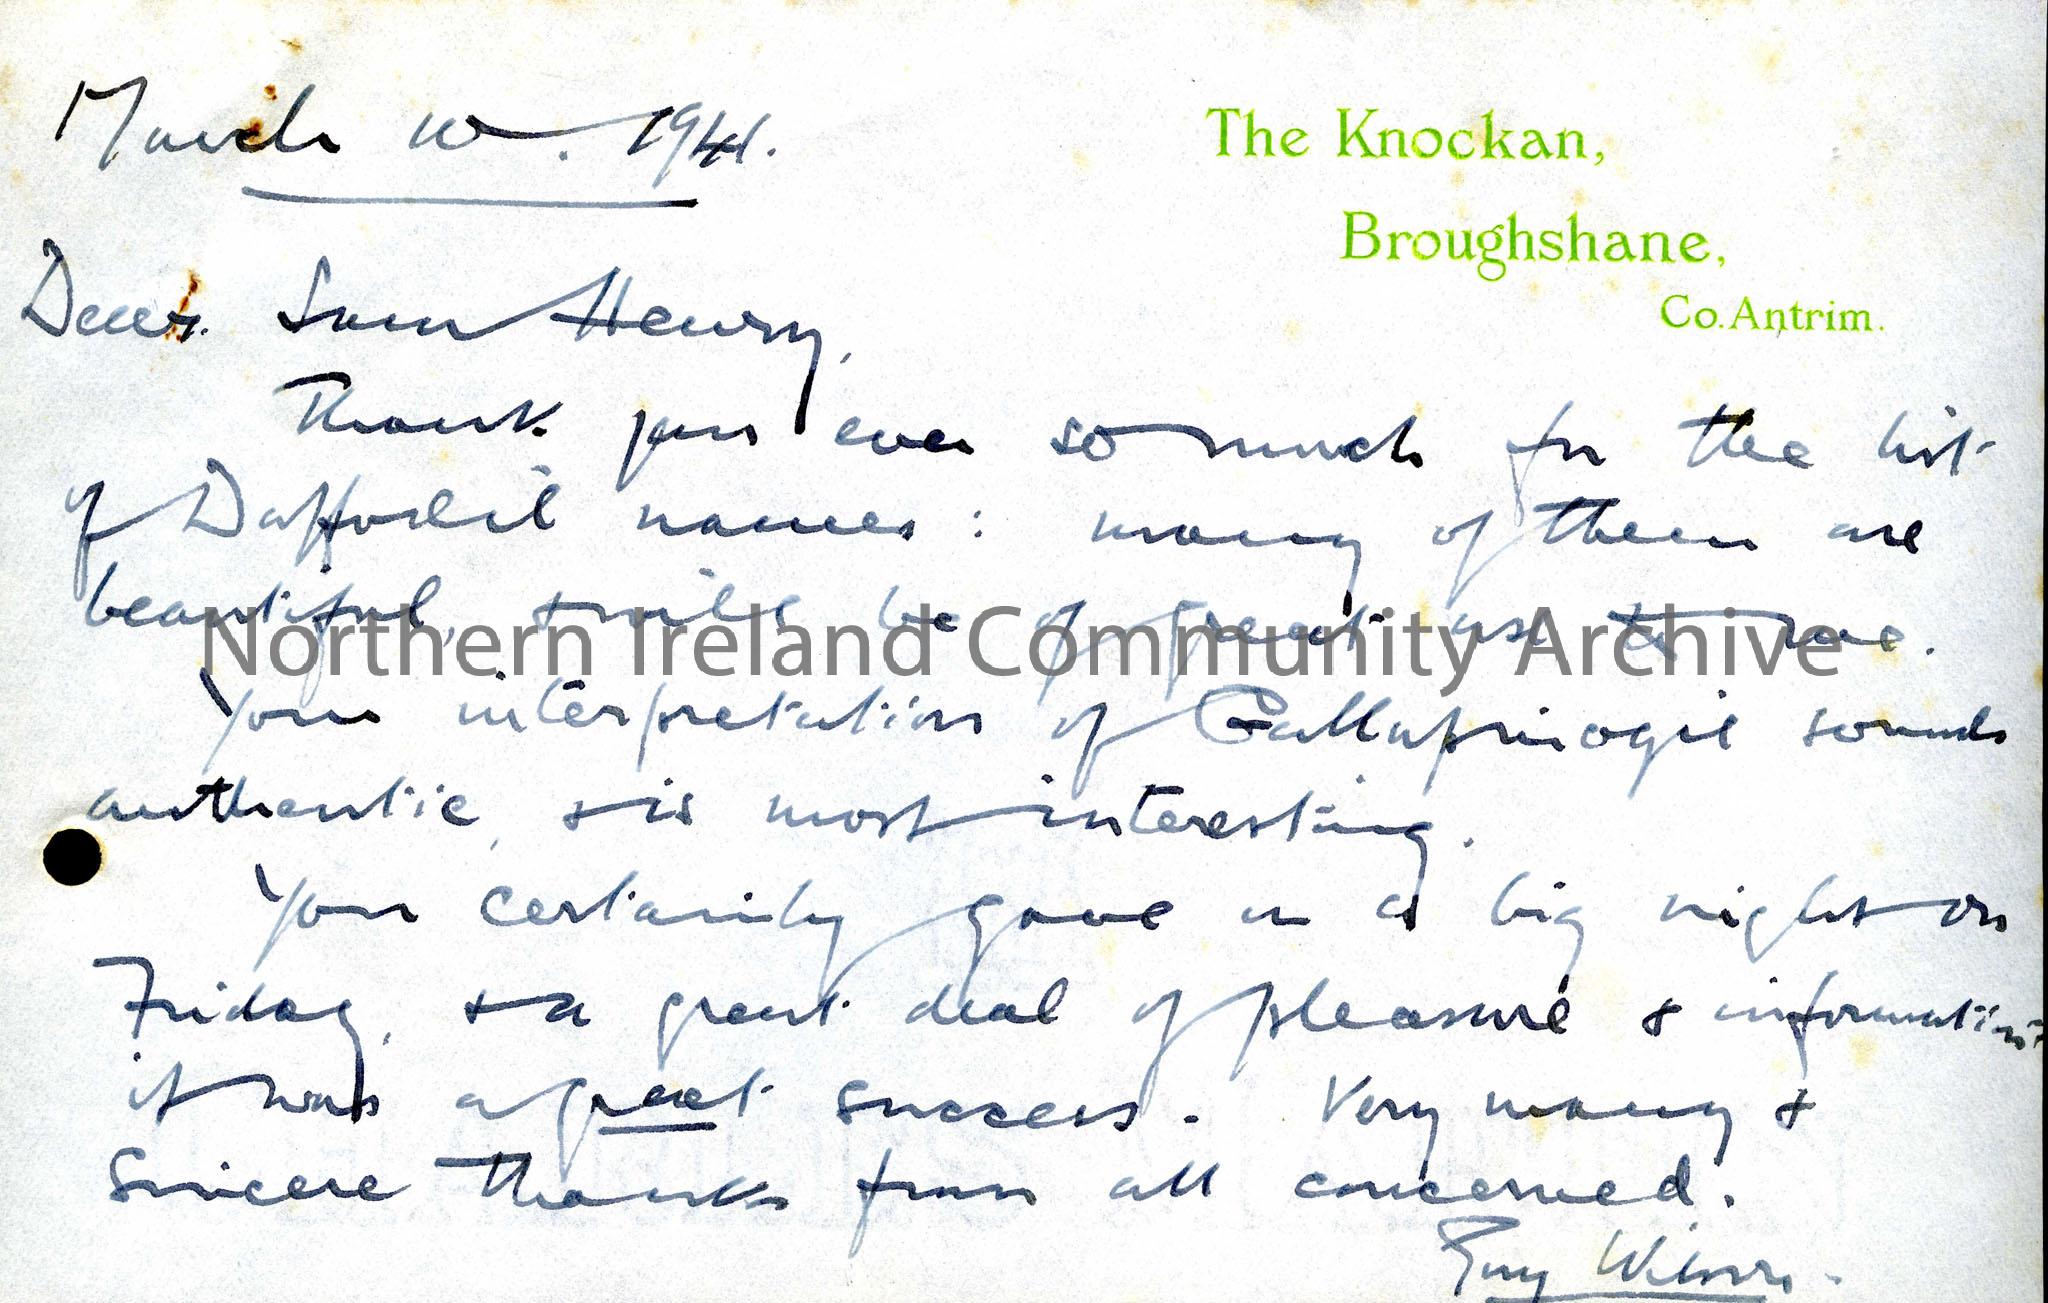 March 10. 1941.
The Knockan,
Broughshane,
Co. Antrim.
Dear Sam Henry,
Thank you ever so much for the list
of Daffodil names: many of them are
beautiful, & will be of great use to me.
Northern Ireland Community Archive
Your interpretation of sounds
authentic, & is most interesting.
You certainly gave us a big night on
Friday, & a great deal of pleasure & information:
it was a great success. Very many &
Sincere thanks from all concerned.
Guy Wilson.